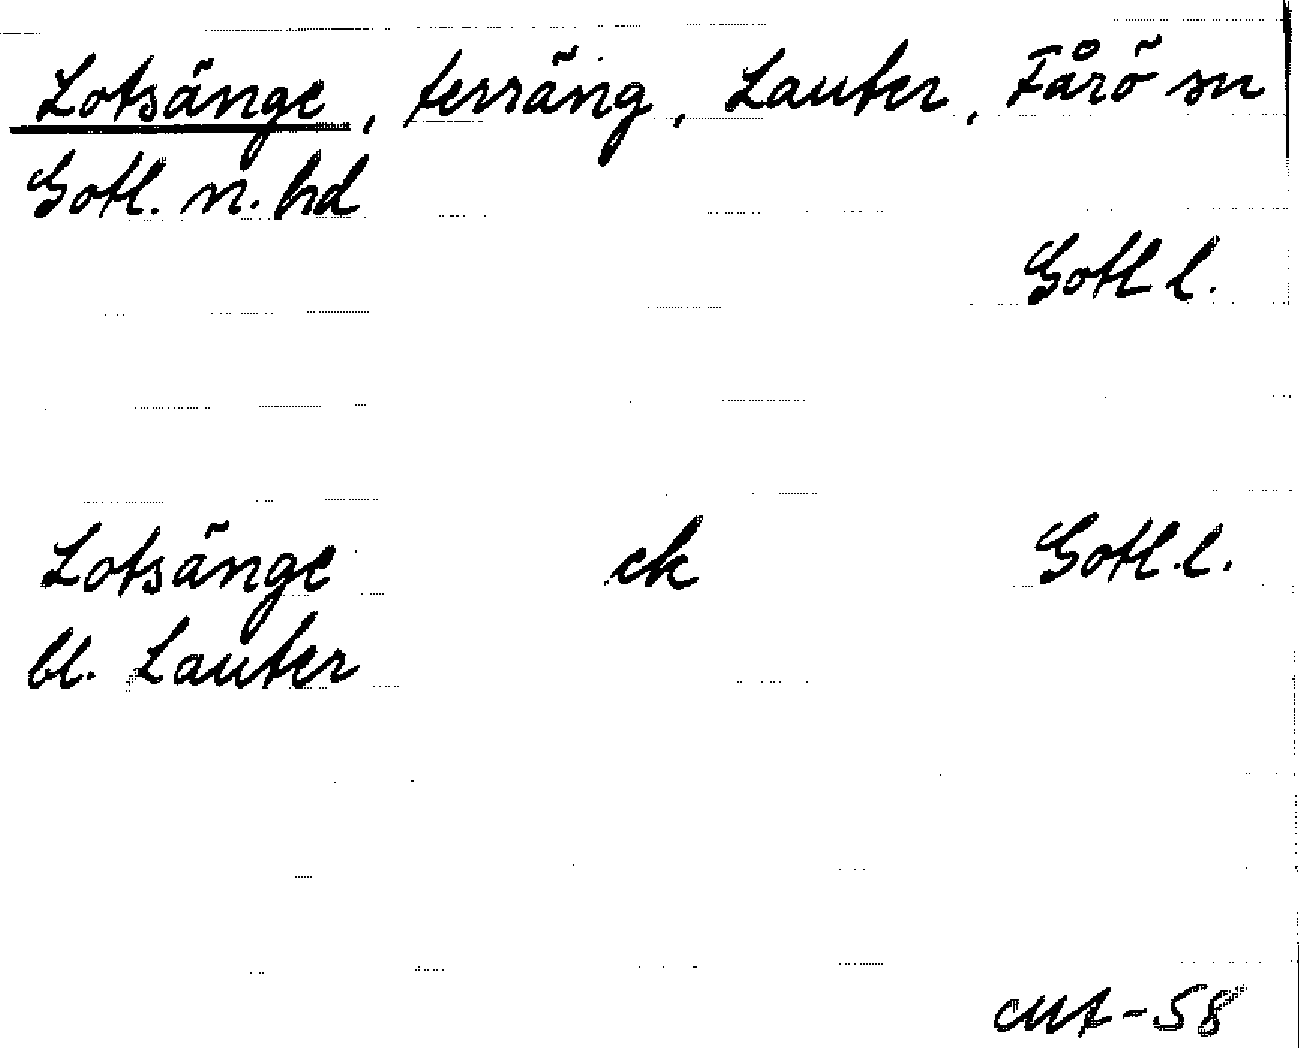 Lotsänge, terräng, Lauter, Fårö sn
Gotl. n. hd
Gotl l.
Lotsänge ek Gotl. l.
bl. Lauter